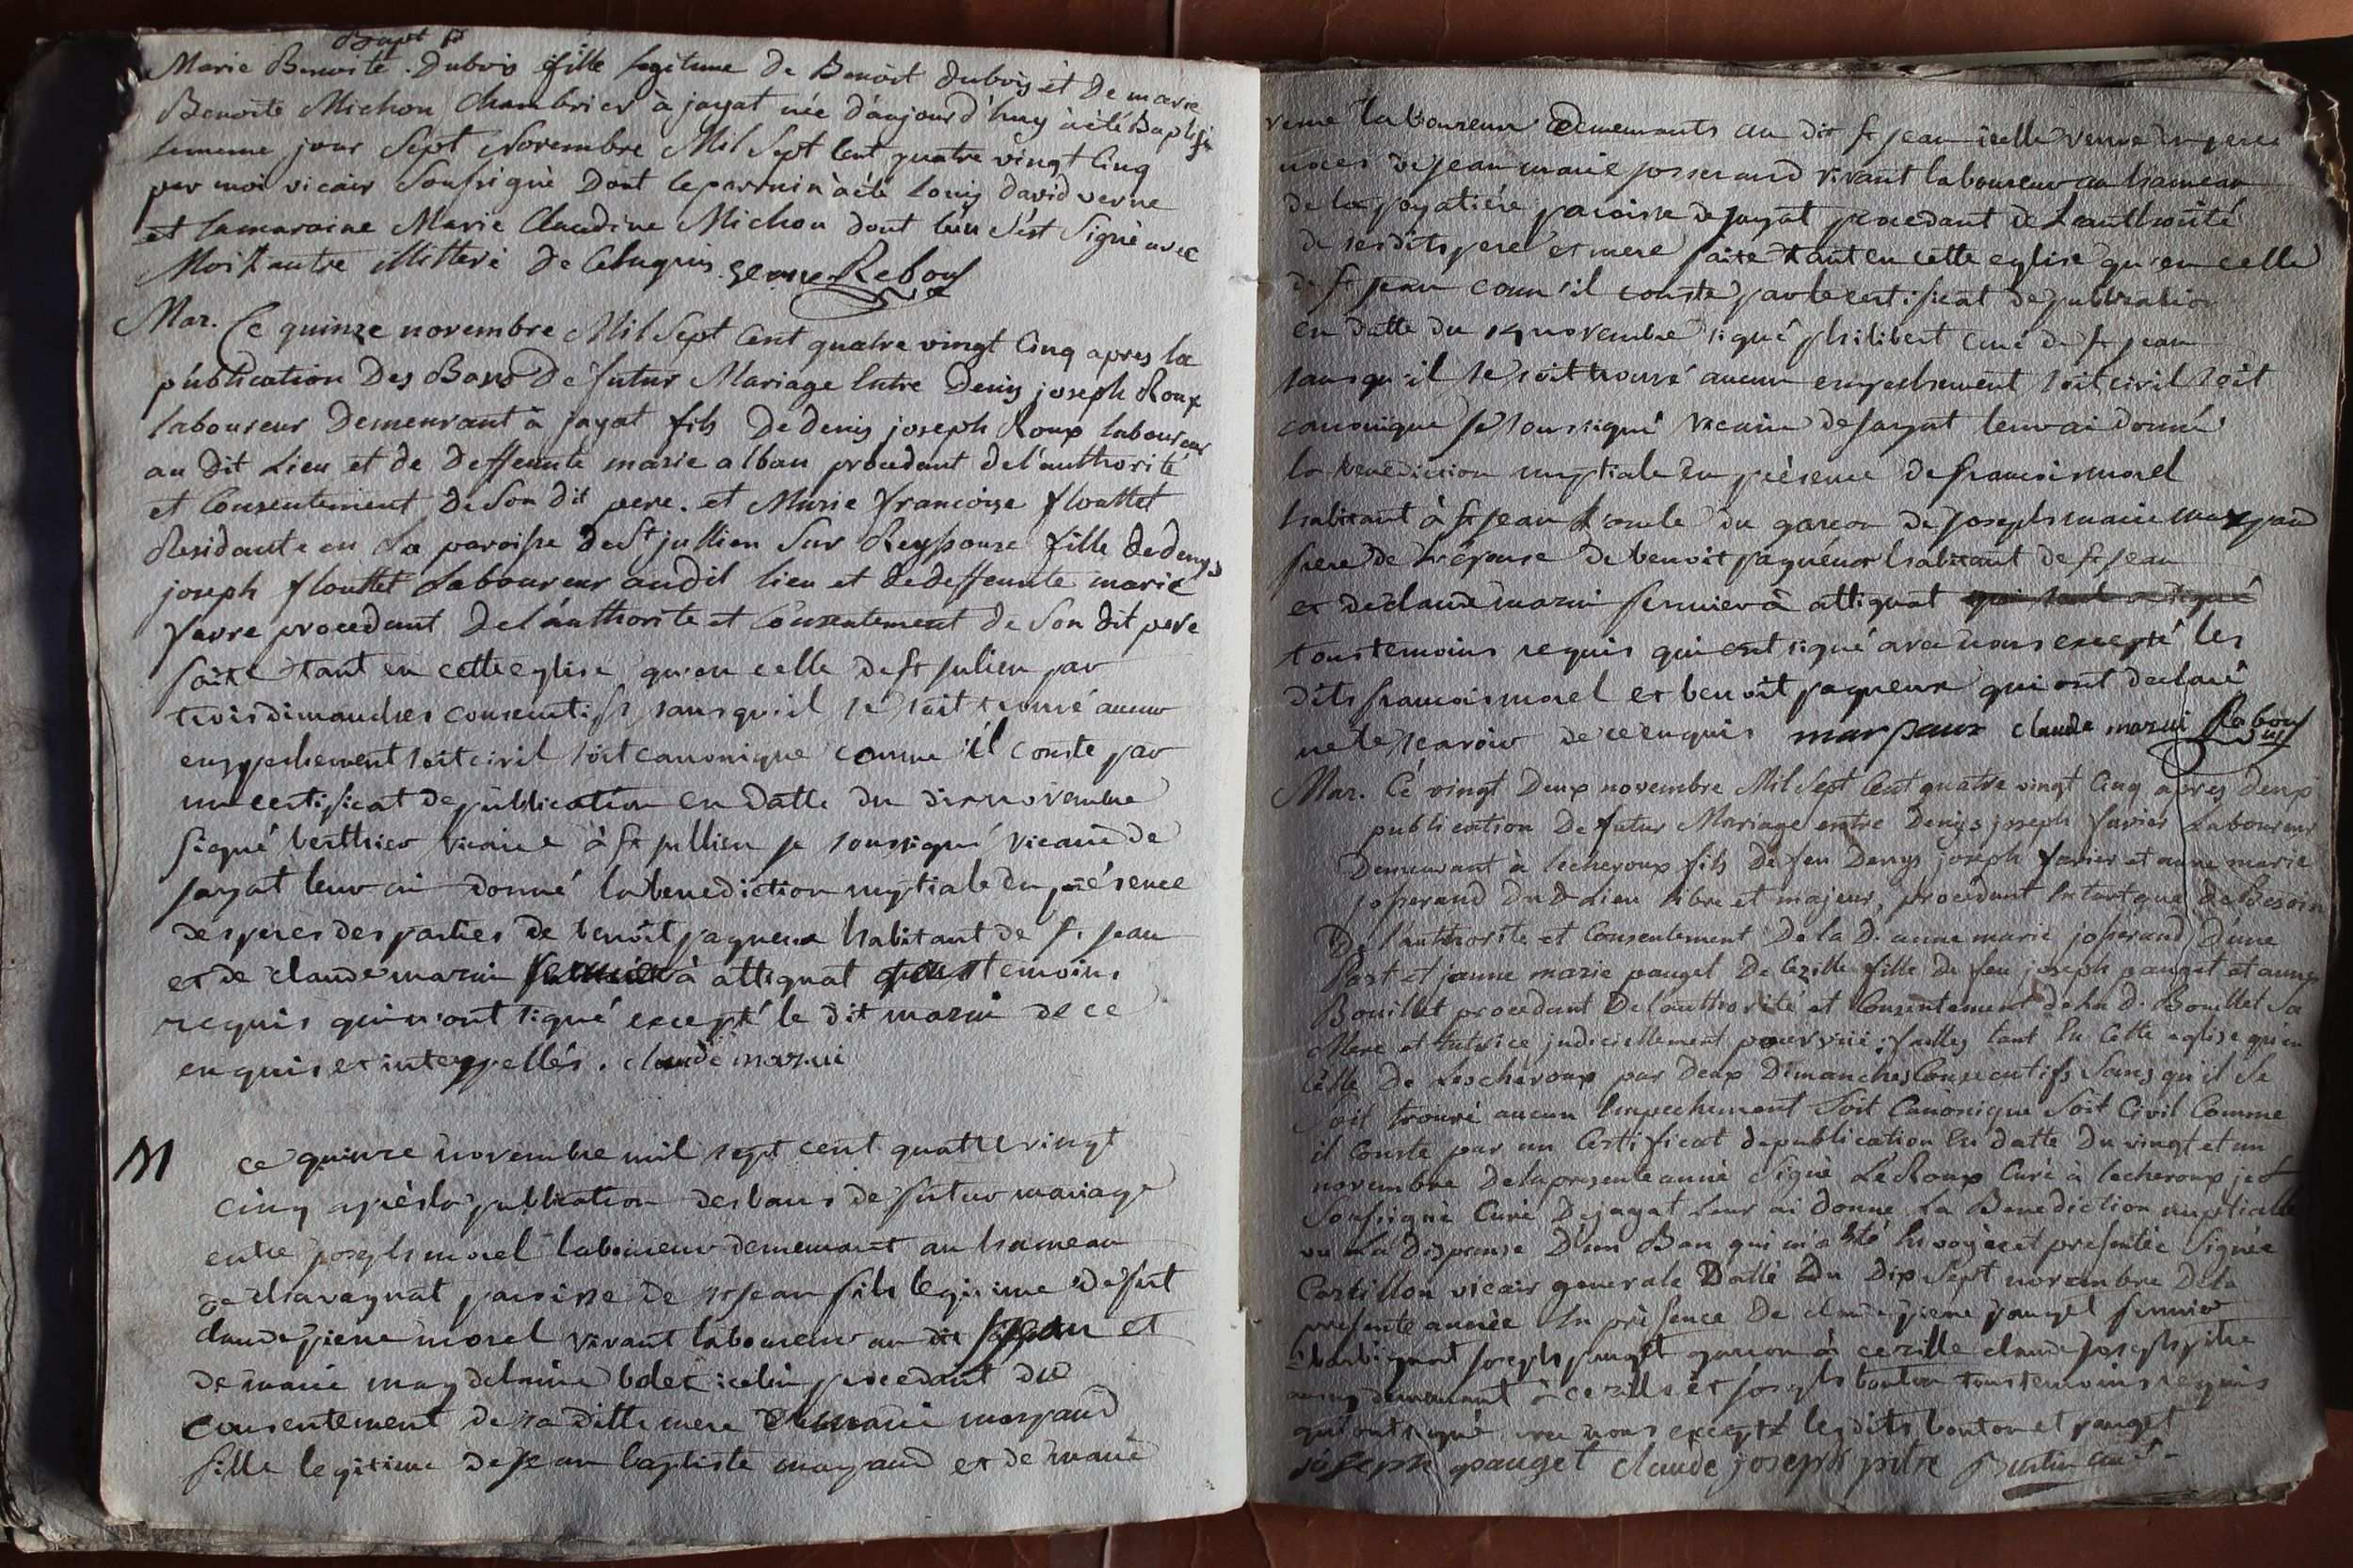 Bapt
Marie Benoite Dubois fille legitime de Benoit dubois et de marie
Benoite Michon Chambrier à jayat née d'aujourd'huy à été Baptisée
lememe jour Sept Novembre Mil Sept Cent quatre vingt Cinq
par moi vicair Soussigné Dont leparrain à été Louis david verne
et lamaraine Marie Claudine Michon dont l'un s'est Signé avec
Moi L'autre illitteré de Ce enquis Rebouf
Mar. Ce quinze novembre Mil Sept Cent quatre vingt Cinq apres la
publication Des Bans De futur Mariage Entre Denis joseph Roux
laboureur Demeurant à jayat fils De denis joseph Roux laboureur
au Dit Lieu et de Deffeunte marie alban procedant de l'authorité
et Consentement De Son dit pere. et Marie francoise flouttet
Residante en La paroisse De St jullien Sur Reyssouze fille de denys
joseph flouttet Laboureur audil lieu et de deffeunte marie
favre procedant De l'authorite et Consentement de Son dit pere
faite tant en cette eglise qu'en celle de st julien par
trois dimanches consecutifs sans qu'il se soit trouvé aucun
empechement soit civil soit canonique comme il conste par
un certificat de publication en datte du dix novembre
signé berthier vicaire à st jullien je soussigné vicaire de
jayat leur ai donné la benediction nuptiale en présence
des peres des parties de benoit paqueux habitant de st jean
et de claude mazui à attignat temoins
requis qui n'ont signé excepté le dit mazui de ce
enquis et interppellés. claude mazui
M ce quinze novembre mil sept cent quattre vingt
cinq après la publication des bans de futur mariage
entre joseph morel laboureur demeurant au hameau
de chavagnat paroisse de st jean fils legitime de fut
claude piere morel vivant laboureur au dit st jean et
de marie magdelaine bolet icelui procedant du
consentement de sa ditte mere et marie marpaud
fille legitime de jean baptiste marpaud et de marie
verne laboureur demeurants au dit st jean icelle veuve en
noces de jean marie josserand vivant laboureur au hameau
de la poyatière paroisse de jayat procedant de L'authorité
de sesdits pere et mere faite tant en cette eglise qu'en celle
de st jean comm'il conste par le certificat de publication
en datte du 14 novembre signé philibert curé de st jean
sans qu'il se soit trouvé aucun empechement soit civil soit
canonique je soussigné vicaire de jayat leur ai donné
la benediction nuptiale en présence de francois morel
habitant à st jean L'oncle du garcon de joseph marie marpaud
frere de L'épouse de benoit paqueux habitant de st jean
et de claude mazui fermier à attignat
tous temoins requis qui ont signé avec nous excepté les
dits francois morel et benoit paqueux qui ont declaré
ne le scavoir de ce enquis marpaux claude mazui Rebouf
Mar. Ce vingt Deux novembre Mil Sept Cent quatre vingt Cinq apres deux
publication De futur Mariage entre Denys joseph favier Laboureur
Demeurant à lecheroux fils De feu Denys joseph favier et anne marie
josserand Du d. Lieu libre et majeur, procedant Entant que De Besoin
De l'authorite et Consentement De la D. anne marie josserand D'une
Part et jeanne marie pauget De Cezille fille De feu joseph pauget et anne
Bouillet procedant De l'authorite et Consentement de la d. Bouillet Sa
Mere et tutrice judiciellement pourvüe; faittes tant En Cette eglise qu'en
Celle De Lescheroux par Deux Dimanches Consecutifs Sans qu'il Se
Soit trouvé aucun Empechement Soit Canonique Soit Civil Comme
il Conste par un Certificat de publication En datte Du vingt et un
novembre De la presente anné Signé LeRoux Curé à lecheroux je
Soussigné Curé De jayat Leur ai donné La Benediction nuptialle
vu La Dispense D'un Ban qui m'a été Envoyée et presentée Signée
Castillon vicair generale Datté Du Dix Sept novembre De la
presente année En présence De claude piere pauget fermier
joseph pauget garcon à cezille claude joseph pitre
demeurant à cezille et joseph bouton tous temoins requis
qui ont signé avec nous excepté lesdits bouton et pauget
joseph pauget claude joseph pitre